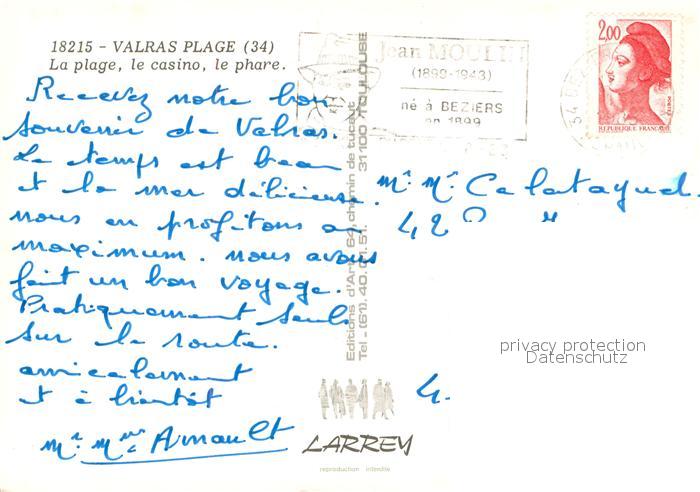 18215 - VALRAS PLAGE (34)
La plage, le casino, le phare.
Recevez notre bon
souvenir de Valras.
Le temps est beau
et la mer délicieuse.
nous en profitons au
maximum. nous avons
fait un bon voyage.
Pratiquement seuls
sur la route.
amicalement
et à bientôt
Mr. Mme Arnault
Editions d'Art 64, chemin de tucaut 31100 TOULOUSE
Tel - (61). 40. 01. 51.
Jean MOULIN
(1899-1943)
né à BEZIERS
en 1899
2,00
REPUBLIQUE FRANÇAISE
Mr. Me. Calatayud.
42
4.
privacy protection
Datenschutz
LARREY
reproduction interdite